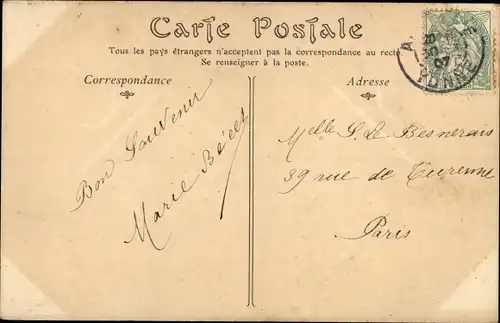 Carte Postale
Tous les pays étrangers n'acceptent pas la correspondance au recto.
Se renseigner à la poste.
Correspondance
Adresse
Bon Souvenir
Marie
Melle S. Le Besnerais
39 rue de Turenne
Paris